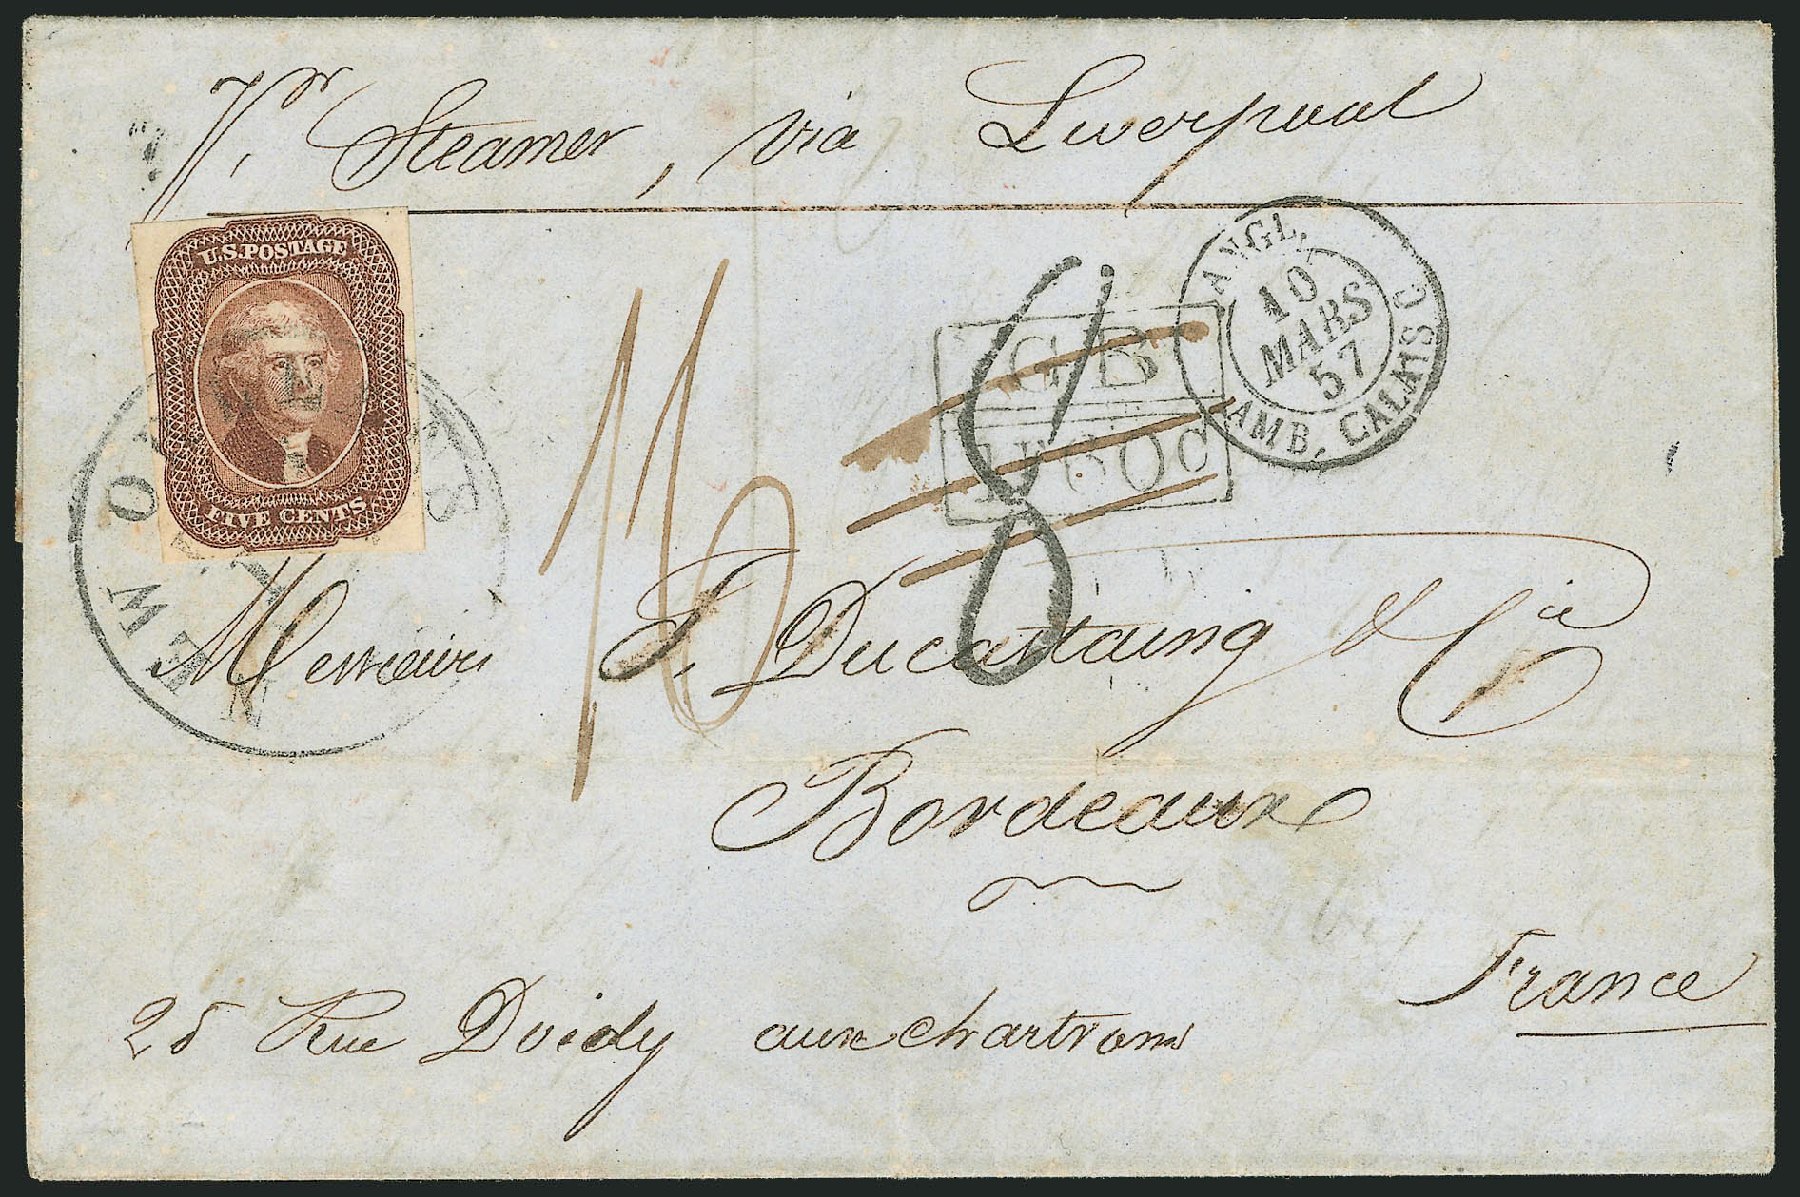 Pr. Steamer, via Liverpool
U.S. POSTAGE
FIVE CENTS
NEW ORLEANS
ANGL.
10
MARS
57
AMB. CALAIS C
GB
1F60c
16
8
Messieurs J. Ducastaing & Cie
Bordeaux
France
25 Rue Doidy aux chartrons